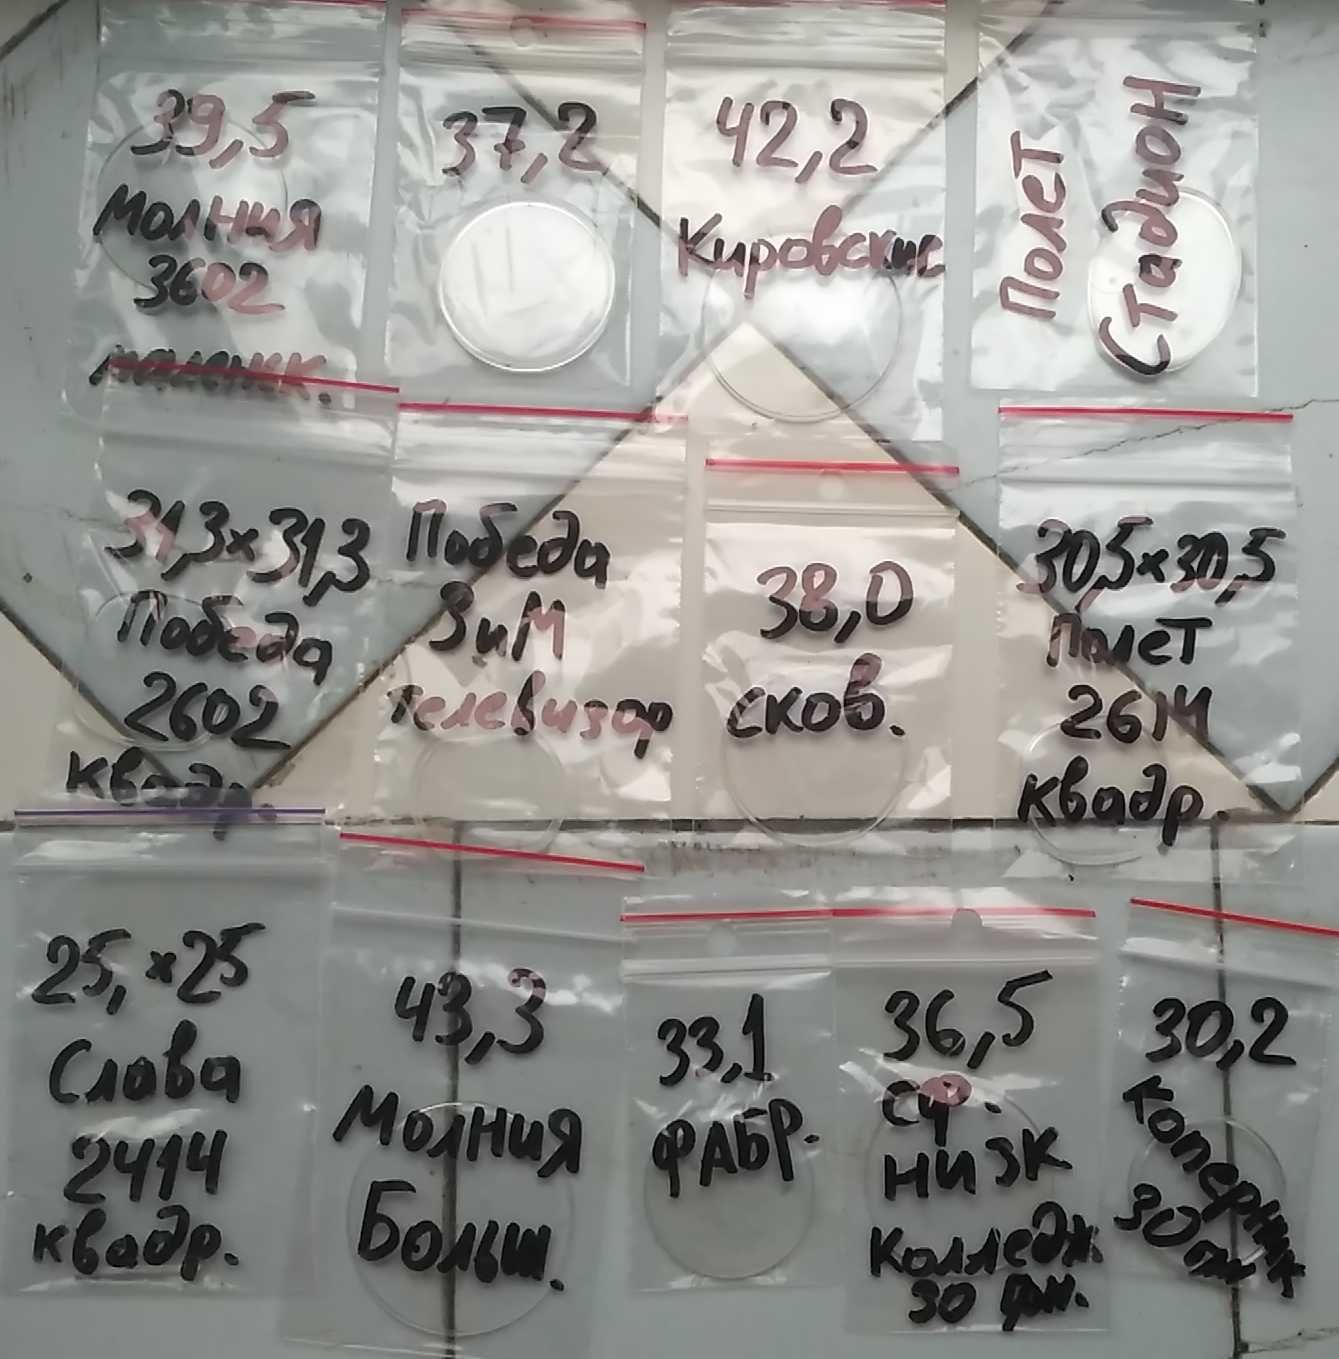 39,5
Молния
3602
37,2
42,2
Кировские
Полет
Стадион
31,3х31,3
Победа
2602
квадр.
Победа
ЗиМ
телевизор
38,0
сков.
30,5х30,5
Полет
2614
квадр.
25,х25
Слава
2414
квадр.
43,3
Молния
Больш.
33,1
ФАБР.
36,5
сф.
низк
Колледж.
30,2
Коперник